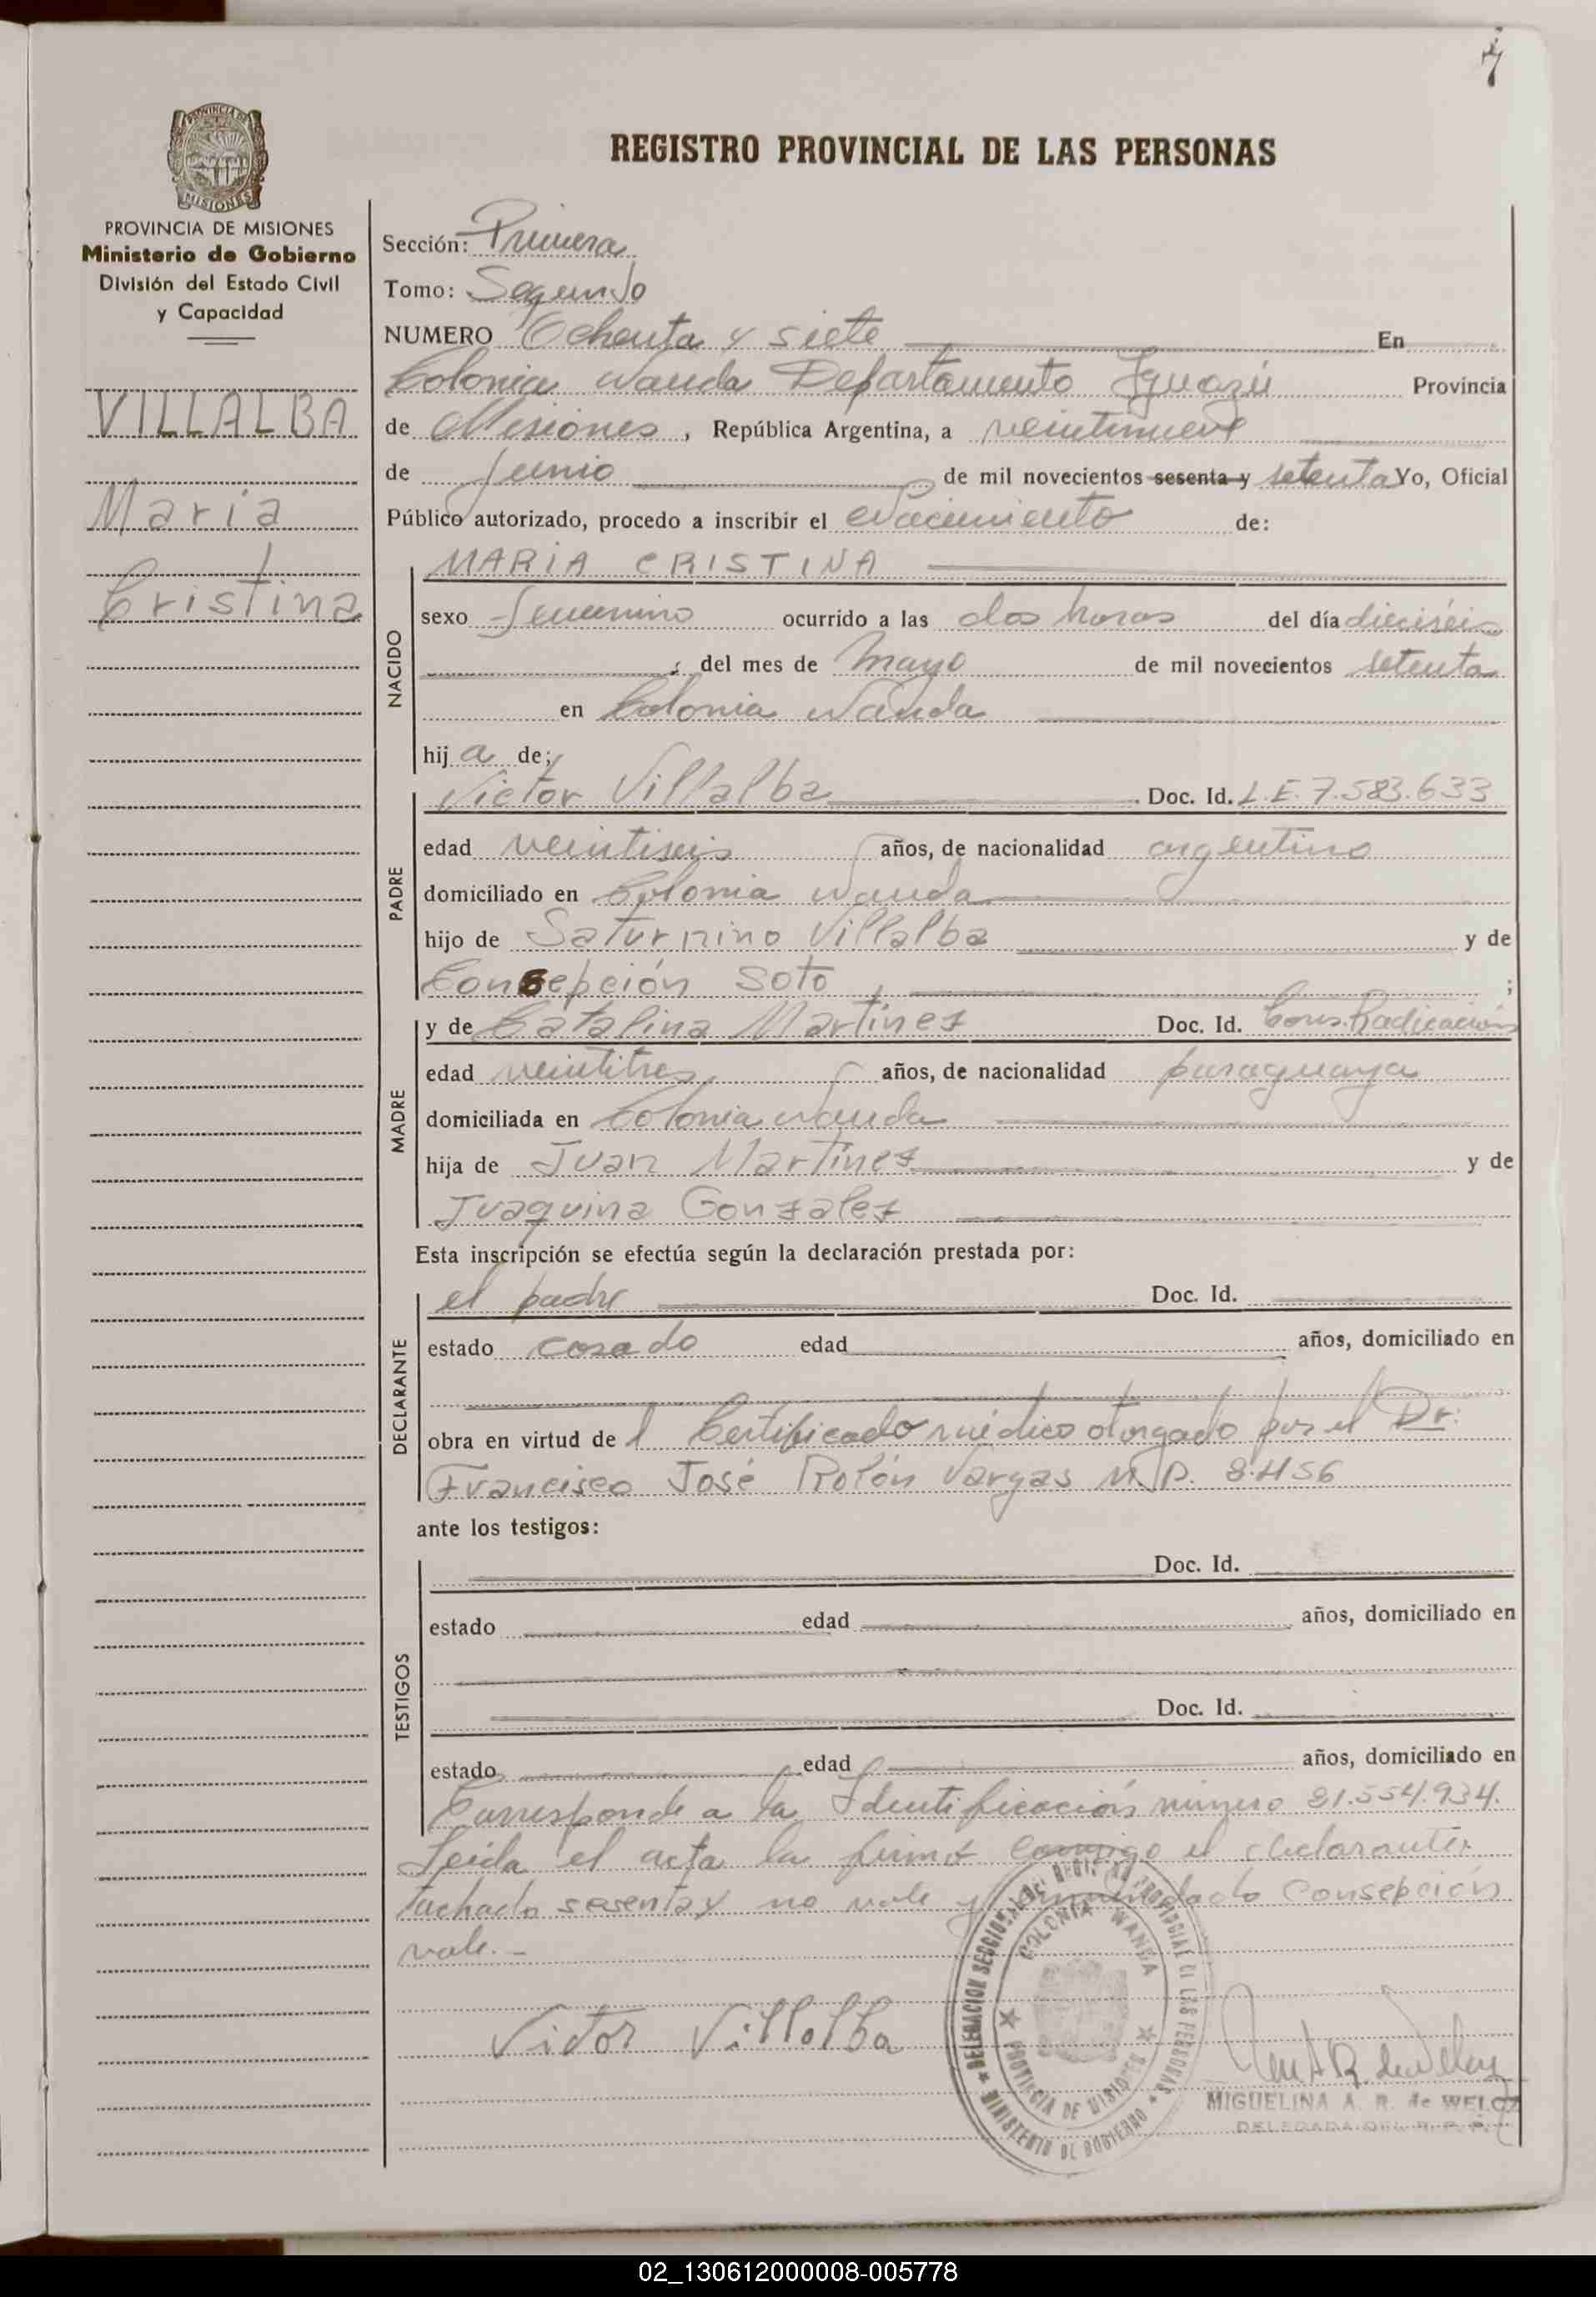 7
PROVINCIA DE MISIONES
Ministerio de Gobierno
División del Estado Civil
y Capacidad
VILLALBA
Maria
Cristina
REGISTRO PROVINCIAL DE LAS PERSONAS
Sección: Primera
Tomo: Segundo
NUMERO Ochenta y siete En
Colonia Wanda Departamento Iguazú Provincia
de Misiones, República Argentina, a veintinueve
de Junio de mil novecientos sesenta y setenta Yo, Oficial
Público autorizado, procedo a inscribir el Nacimiento de:
NACIDO
MARIA CRISTINA
sexo femenino ocurrido a las dos horas del día dieciséis
del mes de mayo de mil novecientos setenta
en Colonia Wanda
hija de;
PADRE
Victor Villalba Doc. Id. L.E. 7.583.633
edad veintiseis años, de nacionalidad argentino
domiciliado en Colonia Wanda
hijo de Saturnino Villalba y de
Consepción Soto ;
MADRE
y de Catalina Martínez Doc. Id. Cons. Radicación
edad veintitres años, de nacionalidad paraguaya
domiciliada en Colonia Wanda
hija de Juan Martínez y de
Juaquina Gonzalez
Esta inscripción se efectúa según la declaración prestada por:
DECLARANTE
el padre Doc. Id.
estado casado edad años, domiciliado en
obra en virtud del Certificado médico otorgado por el Dr:
Francisco José Rolón Vargas M.P. 8.456
ante los testigos:
TESTIGOS
Doc. Id.
estado edad años, domiciliado en
Doc. Id.
estado edad años, domiciliado en
Corresponde a la Identificación número 21.554.934.
Leída el acta la firmó conmigo el declarante:
tachado sesenta y no vale y enmendado Consepción
vale.-
Victor Villalba
DELEGACION SECCIONAL DEL REGISTRO PROVINCIAL DE LAS PERSONAS
MINISTERIO DE GOBIERNO
COLONIA WANDA
PROVINCIA DE MISIONES
MIGUELINA A. R. de WELCZ
DELEGADA DEL R. P. P.
02_130612000008-005778